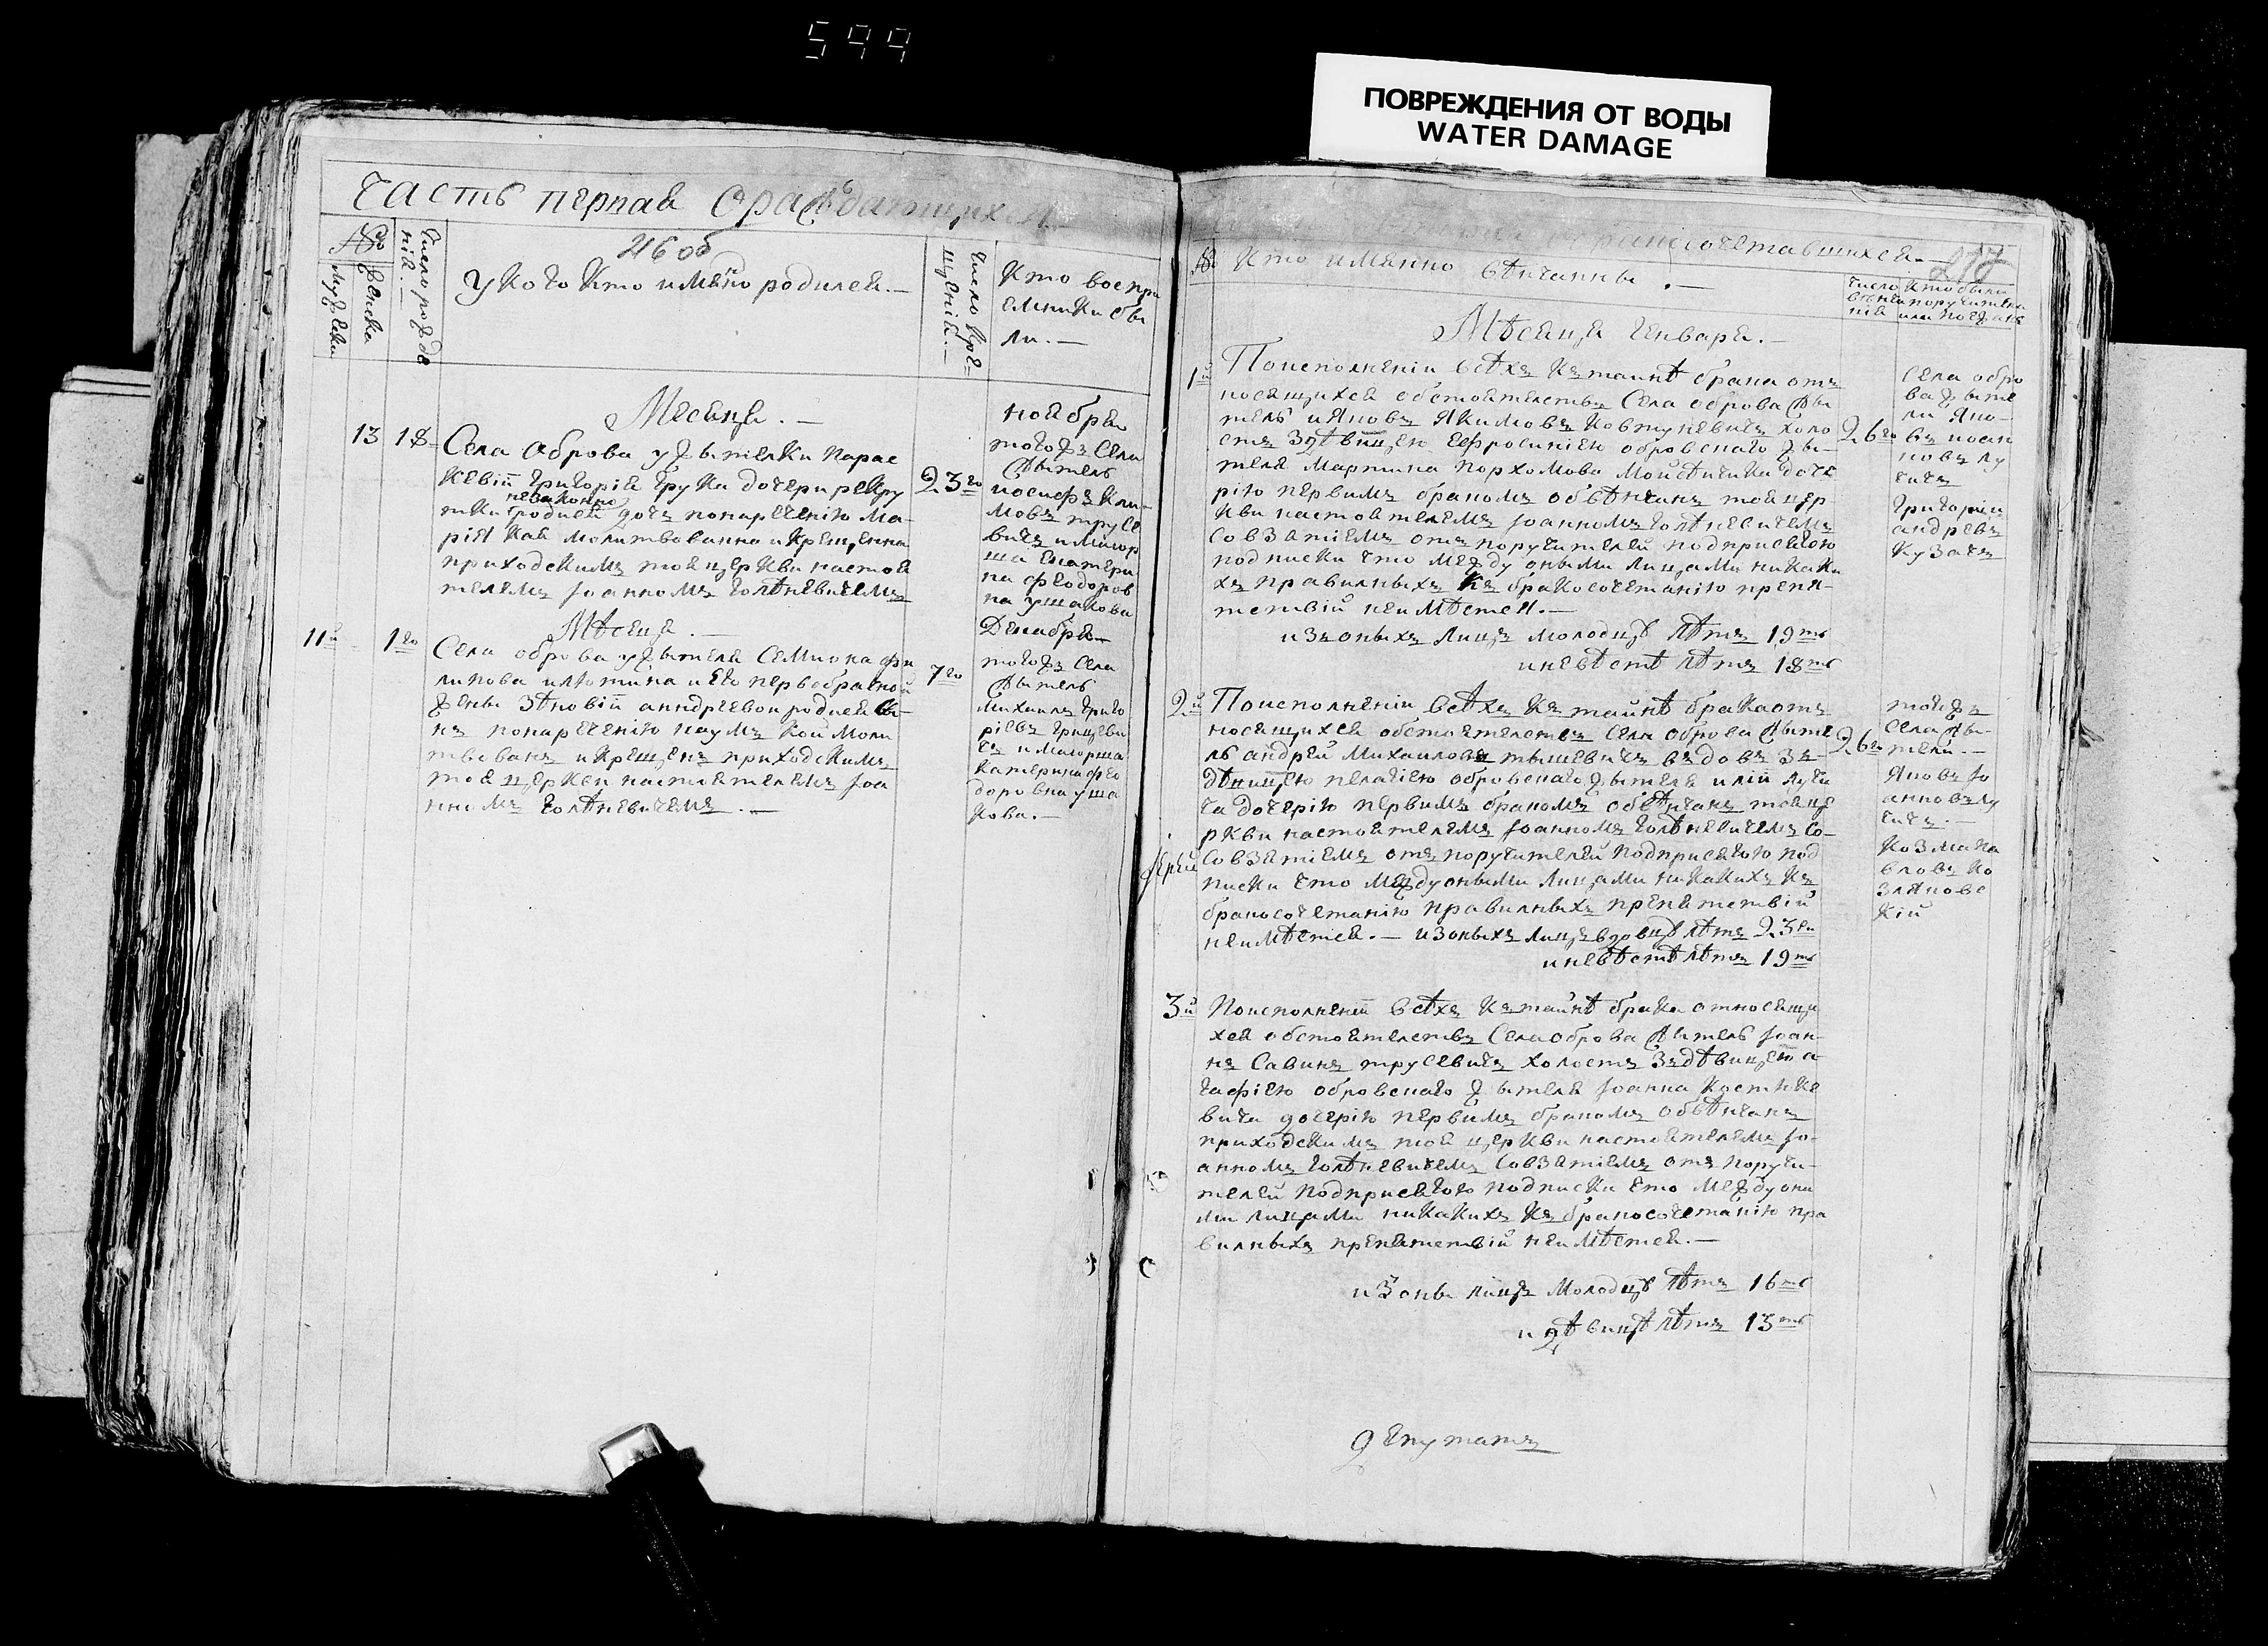 599
ПОВРЕЖДЕНИЯ ОТ ВОДЫ
WATER DAMAGE
Часть первая О раждающихся
216 об
№
Мужеска
Женска
Число рожденія.—
У кого Кто имянно родился.—
Число крещеній.—
Кто воспри
емники бы
ли.—
Месяца.—
Ноября
13 18
Села Оброва у жителки Парас
кевіи Григорія Грука дочери рекру
незаконно
тки родися дочь понаречению Ма-
рія Коя молитвованна и крещенна
приходскимъ тоя церкви настоя
телемъ Іоанномъ Голѣневичемъ
23го
тогожъ Села
Житель
Иосифъ Кли-
мовъ трусе
вичъ и Маіор
ша Екатери
на Феодоров
на Ушакова
Мѣсяца.—
Декабря—
11й 1го
Села оброва у жителя Семиона фи
липова илютина и Его первобрачной
жены Зѣновіи андреевои родися сы-
нъ понареченію наумъ кои моли
твованъ и крещенъ приходскимъ
тоя церкви настоятелемъ Іоа
нномъ Голѣневичемъ.—
7го
тогожъ села
Житель
Михаилъ Григо
ріевъ Грицеви
чъ и Маіорша
Катерина фео
доровна уша
кова.—
бракосочетавшихся.—
217
№
Кто имянно вѣнчанны.—
Число
вѣнча
нія
Кто были
поручители
или поезжане
Мѣсяца Генваря.—
1й
По исполненіи всѣхъ къ таинѣ брака отъ
носящихся обстоятельствъ Села оброва Жи
тель и Яновъ Якимовъ Ковтуневичъ холо
стъ Зъ дѣвицею Ефросиніею обровскаго жи-
теля Мартина Пархомова Мойсѣички доче
рію первимъ бракомъ обвѣнчанъ тоя цер-
кви настоятелемъ Іоанномъ Голѣневичемъ
Со взятіемъ отъ поручителей под присягою
подписки что между оными лицами никаки
хъ правилныхъ къ бракосочетанію препя-
тствій неимѣется.—
изъ оныхъ лицъ молодцу лѣтъ 19ть
и невѣстѣ лѣтъ 18ть
26го
Села обро
ва жите
ли Яно-
въ иоан
новъ лу
чичъ
Григорій
андреевъ
Кузачъ
2й
По исполненіи всѣхъ къ таинѣ брака отъ
носящихся обстоятелствъ Села оброва Жите
ль андрей Михаиловъ тышевичъ вдовъ Зъ
дѣвицею пелагіею обровскаго жителя илии лучи
ча дочерію первимъ бракомъ обвѣнчанъ тоя це
ркви настоятелемъ Іоанномъ Голѣневичемъ со
Со взятіемъ отъ поручителей под присягою под
писки что между оными лицами никакихъ къ
бракосочетанію правилныхъ препятствій
неимѣется.— изъ оныхъ лицъ вдовцу лѣтъ 23ри
и невѣстѣ лѣтъ 19ть
26го
тогожъ
села Жи-
тели.—
Яновъ Іо
анновъ лу
чичъ.—
Козма па
вловъ Ко
зляковс
кій
Іерей
3й
По исполненіи всѣхъ къ таинѣ брака относящи
хся обстоятелствъ Села оброва Житель Іоан-
нъ Савинъ трусевичъ холостъ Зъ дѣвицею а
гафіею обровскаго жителя Іоанна Костюке
вича дочерію первимъ бракомъ обвѣнчанъ
приходскимъ тоя церкви настоятелемъ Іо-
анномъ Голѣневичемъ Со взятіемъ отъ поручи-
телей под присягою подписки что между они
ми лицами никакихъ къ бракосочетанію пра
вилныхъ препятствій неимѣется.—
изъ оны лицъ Молодцу лѣтъ 16ть
и дѣвицѣ лѣтъ 13ть
депутатъ